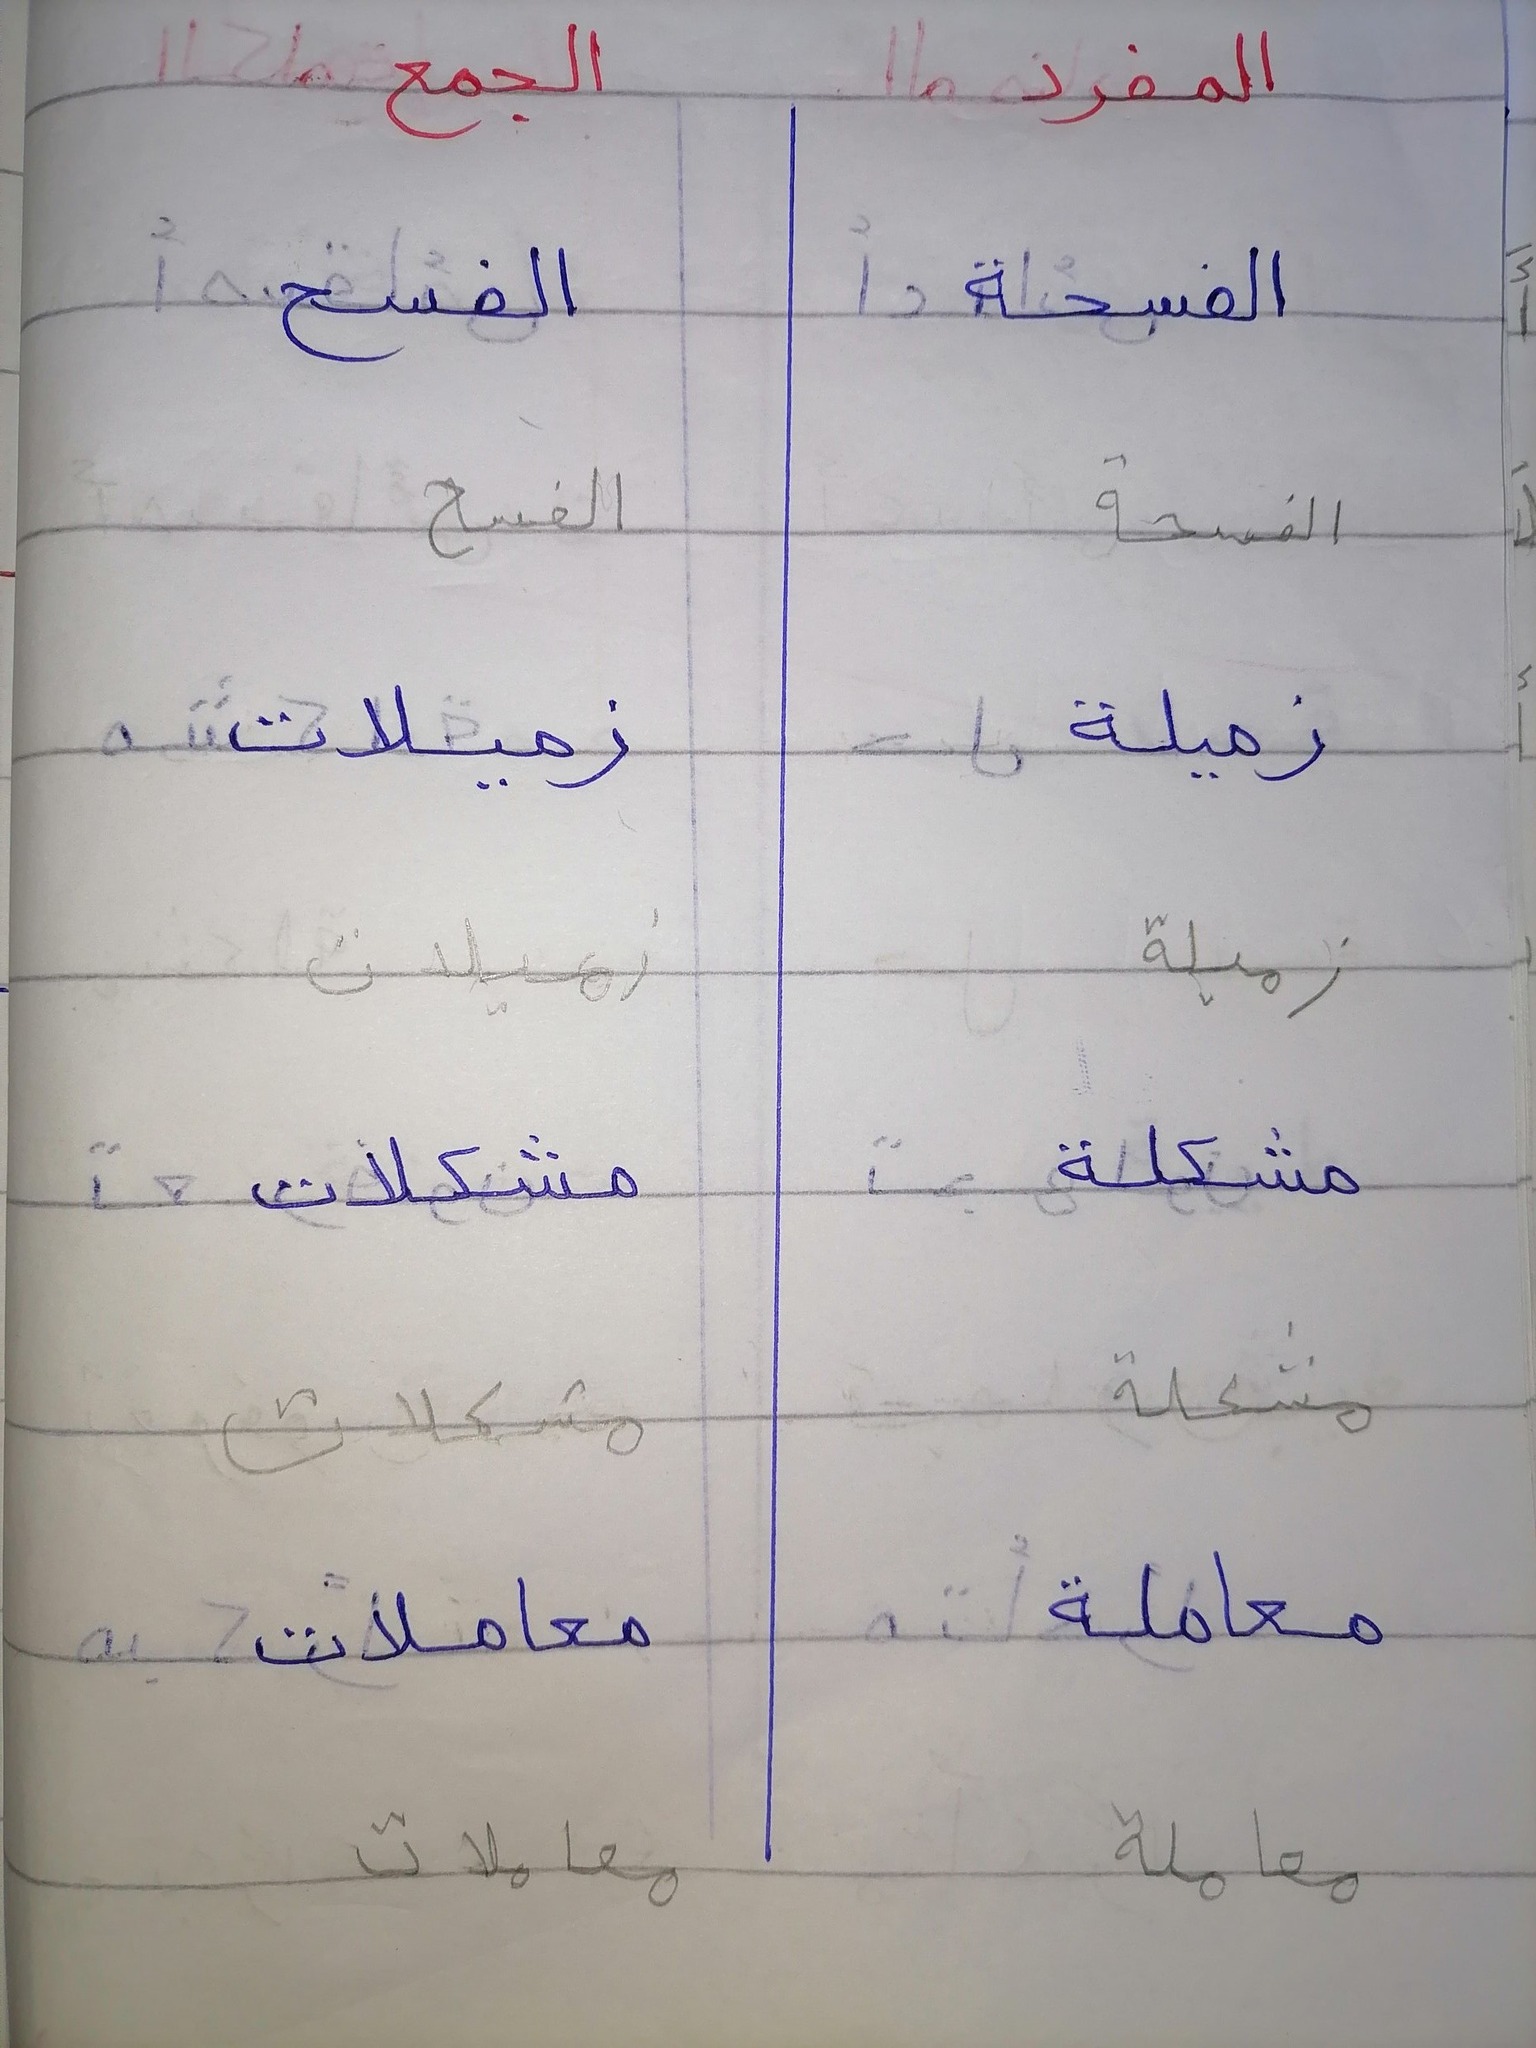 المفرد الجمع
الفسحة الفسح
الفسحة الفسح
زميلة زميلات
زميلة زميلات
مشكلة مشكلات
مشكلة مشكلات
معاملة معاملات
معاملة معاملات